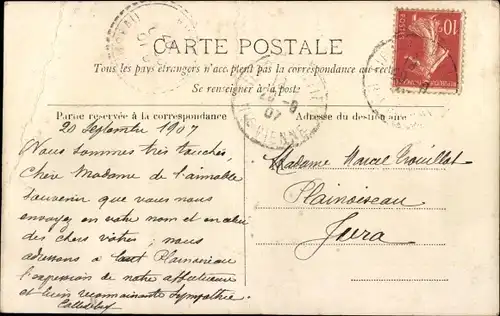 CARTE POSTALE
Tous les pays étrangers n'acceptent pas la correspondance au recto
Se renseigner à la poste
Partie réservée à la correspondance
Adresse du destinataire
20 Septembre 1907
Nous sommes très touchés,
Chère Madame de l'aimable
souvenir que vous nous
envoyez en votre nom et en celui
des chers vôtres; nous
adressons à tout Plainoiseau
l'expression de notre affectueuse
et bien reconnaissante sympathie.
Madame Marcel Trouillet
Plainoiseau
Jura
10
POSTES
07
VIENNE